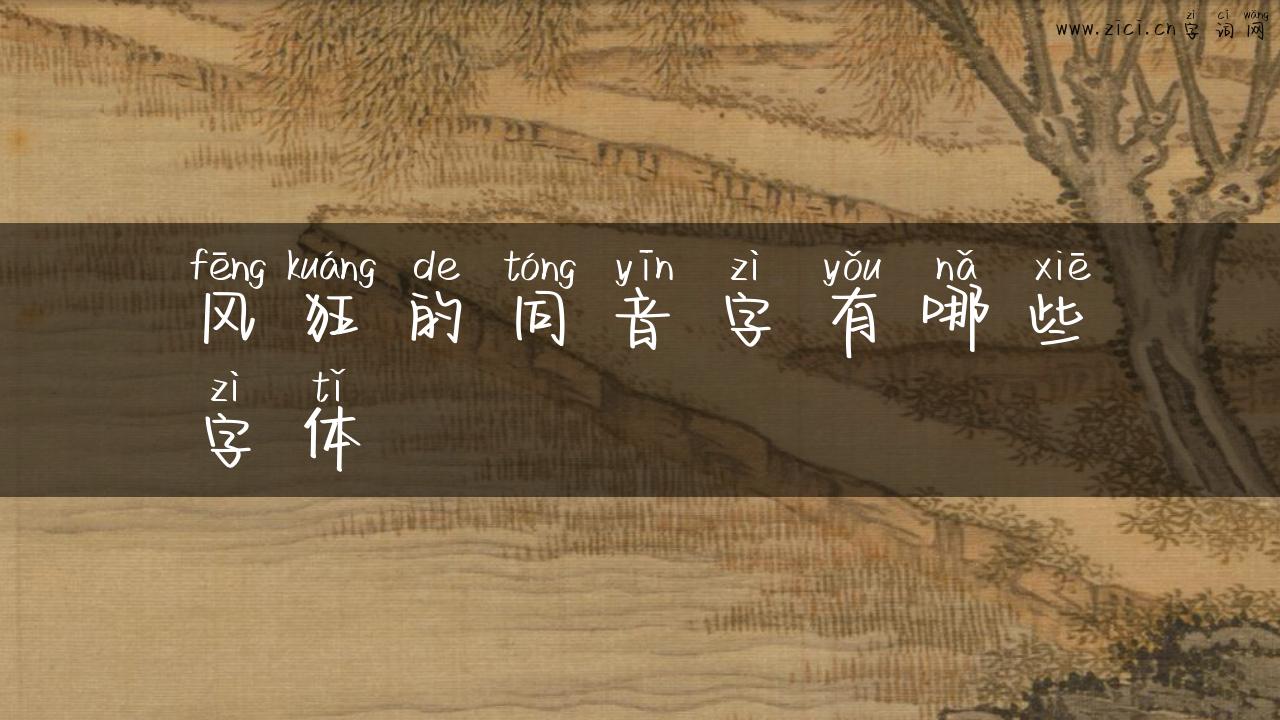 www.zici.cn zì cí wǎng
字词网
fēng kuáng de tóng yīn zì yǒu nǎ xiē
风狂的同音字有哪些
zì tǐ
字体